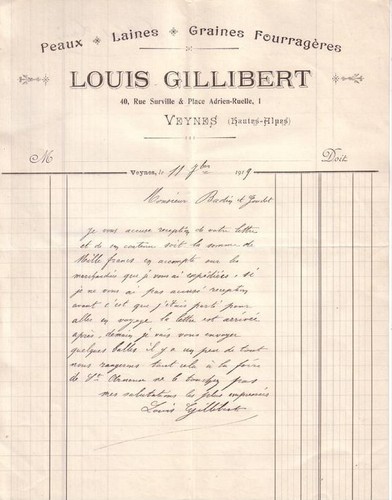 Peaux Laines Graines Fourragères
LOUIS GILLIBERT
40, Rue Surville & Place Adrien-Ruelle, 1
VEYNES (Hautes-Alpes)
M Doit
Veynes, le 11 1919
Monsieur
Je vous accuse reception de votre lettre
et de son contenu soit la somme de
Mille francs en accompte sur les
marchandises que je vous ai expédiées, si
je ne vous ai pas accusé reception
avant c'est que j'étais parti pour
aller en voyage la lettre est arrivée
après. demain je vais vous envoyer
quelques balles il y a un peu de tout
nous tout cela à la foire
de St
mes salutations les plus empressées
Louis Gillibert